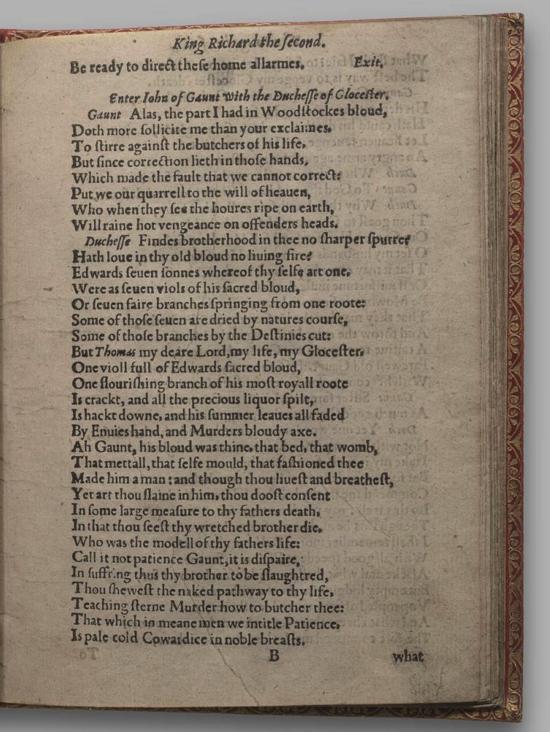 King Richard the second.
Be ready to direct these home allarmes. Exit.
Enter Iohn of Gaunt with the Duchesse of Glocester.
Gaunt Alas, the part I had in Woodstockes bloud,
Doth more sollicite me than your exclaimes,
To stirre against the butchers of his life,
But since correction lieth in those hands,
Which made the fault that we cannot correct:
Put we our quarrell to the will of heauen,
Who when they see the houres ripe on earth,
Will raine hot vengeance on offenders heads.
Duchesse Findes brotherhood in thee no sharper spurre?
Hath loue in thy old bloud no liuing fire?
Edwards seuen sonnes whereof thy selfe art one,
Were as seuen viols of his sacred bloud,
Or seuen faire branches springing from one roote:
Some of those seuen are dried by natures course,
Some of those branches by the Destinies cut:
But Thomas my deare Lord, my life, my Glocester,
One violl full of Edwards sacred bloud,
One flourishing branch of his most royall roote
Is crackt, and all the precious liquor spilt,
Is hackt downe, and his summer leaues all faded
By Enuies hand, and Murders bloudy axe.
Ah Gaunt, his bloud was thine, that bed, that womb,
That mettall, that selfe mould, that fashioned thee
Made him a man: and though thou liuest and breathest,
Yet art thou slaine in him, thou doost consent
In some large measure to thy fathers death,
In that thou seest thy wretched brother die,
Who was the modell of thy fathers life:
Call it not patience Gaunt, it is dispaire,
In suffring thus thy brother to be slaughtred,
Thou shewest the naked pathway to thy life,
Teaching sterne Murder how to butcher thee:
That which in meane men we intitle Patience,
Is pale cold Cowardice in noble breasts.
B what